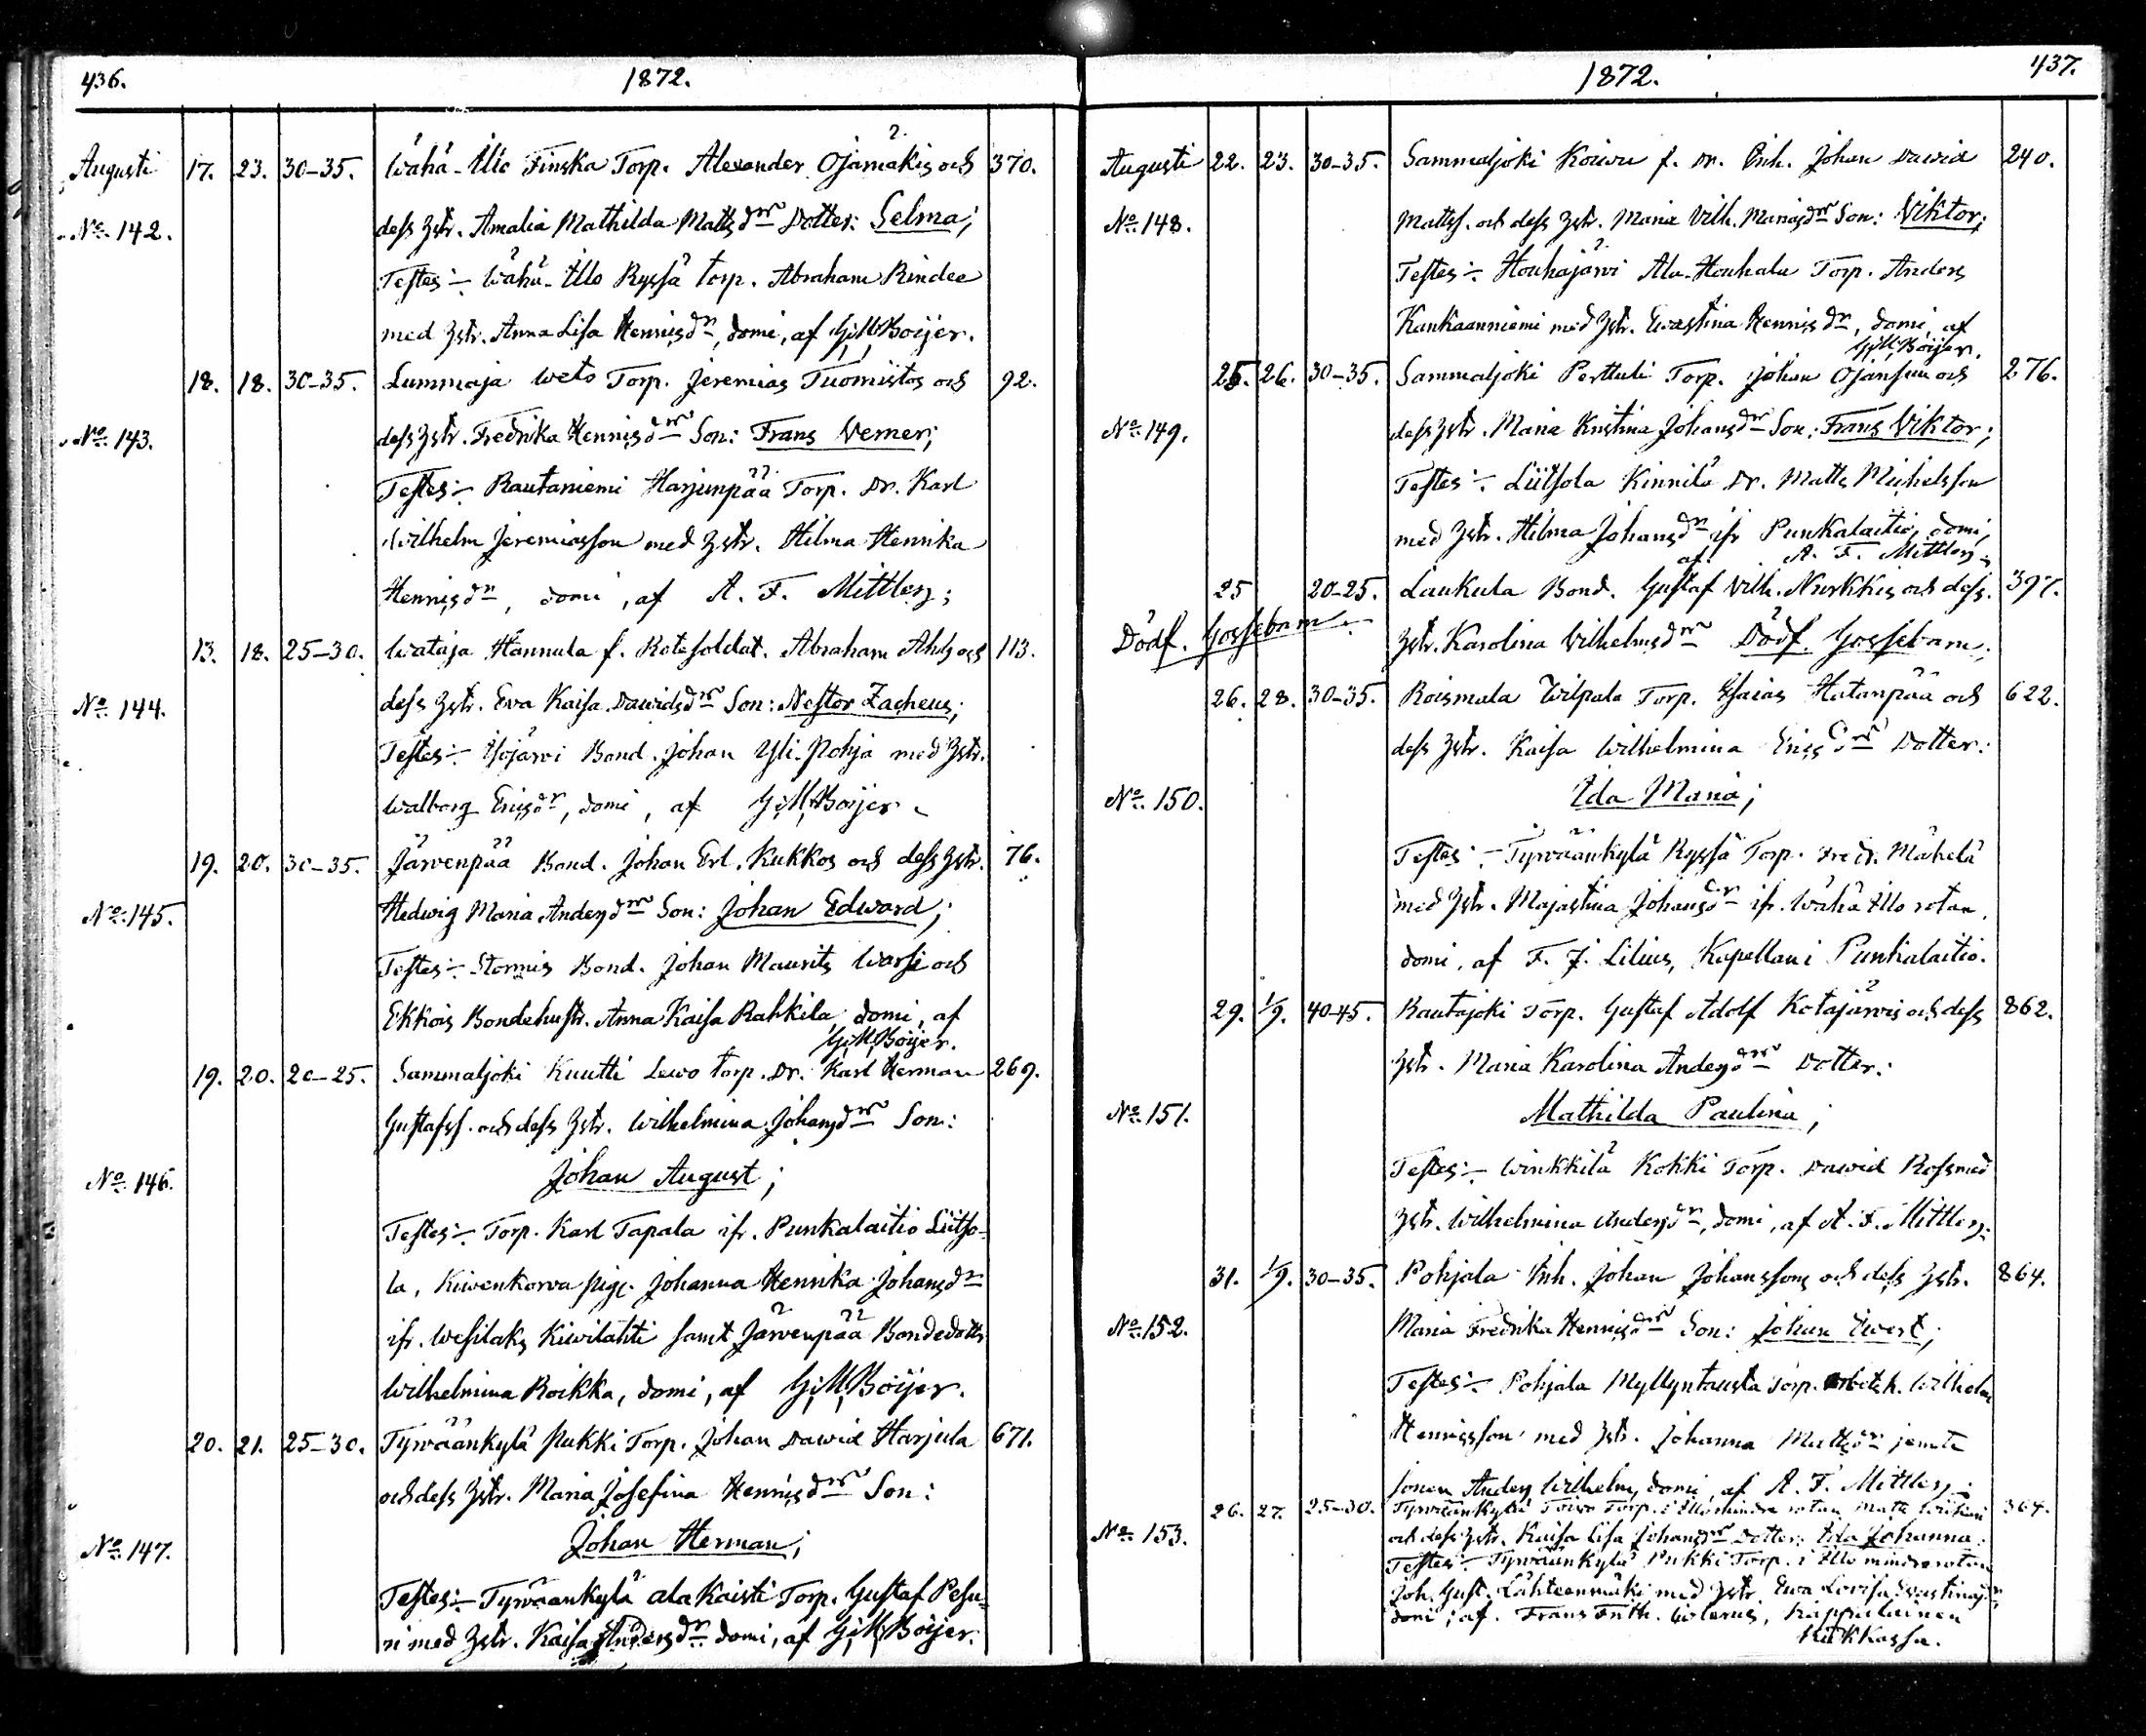 436.
1872.
Augusti 17. 23. 30–35. Wähä-Ulo Finska Torp. Alexander Ojamäkis och 370.
No. 142. dess hstr. Amalia Mathilda Mattsdr Dotter: Selma;
Testes:– Wähä-Illo Ryssä Torp. Abraham Rindee
med hstr. Anna Lisa Henrisdr, domi, af G. M. Boijer.
18. 18. 30–35. Lummaja Weto Torp. Jeremias Tuomistos och 92.
No. 143. dess hstr. Fredrika Henrisdr Son: Frans Verner;
Testes:– Rautaniemi Harjunpää Torp. Dr. Karl
Wilhelm Jeremiasson med hstr. Hilma Henrika
Henrisdr, domi, af A. F. Mittler;
13. 18. 25–30. Wataja Hannula f. Rotesoldat. Abraham Ahls och 113.
No. 144. dess hstr. Eva Kaisa Davidsdr Son: Nestor Zacheus;
Testes:– Isojärvi Bond. Johan Yli-Pohja med hstr.
Walborg Ericsdr, domi, af G. M. Boijer.
19. 20. 30–35. Järvenpää Bond. Johan Erl. Kukkos och dess hstr. 76.
No. 145. Hedwig Maria Andersdr Son: Johan Edward;
Testes:– Stormis Bond. Johan Maurits Warsi och
Ekkois Bondehustr. Anna Kaisa Rahkila, domi, af
G. M. Boijer.
19. 20. 20–25. Sammaljoki Kuutti Lewo Torp. Dr. Karl Herman 269.
Gustafss. och dess hstr. Wilhelmina Johansdr Son:
No. 146. Johan August;
Testes:– Torp. Karl Tapala ifr. Punkalaitio Liitso-
la, Kiwenkorva pig. Johanna Henrika Johansdr
ifr. Wesilaks Kiwilahti samt Järvenpää Bondedottr
Wilhelmina Roikka, domi, af G. M. Boijer.
20. 21. 25–30. Tyrwäänkylä Pukki Torp. Johan Dawid Harjula 671.
och dess hstr. Maria Josefina Henrisdr Son:
No. 147. Johan Herman;
Testes:– Tyrwäänkylä ala Kaisti Torp. Gustaf Pesu-
ri med hstr. Kaisa Andersdr domi, af G. M. Boijer.
1872.
437.
Augusti 22. 23. 30–35. Sammaljoki Koiwu f. Dr. Inh. Johan Dawid 240.
No. 148. Mattss. och dess hstr. Maria Vilh. Mariasdr Son: Viktor;
Testes:– Houhajärvi Ala-Houhala Torp. Anders
Kankaanniemi med hstr. Evastina Henrisdr, domi, af
G. M. Boijer.
25. 26. 30–35. Sammaljoki Perttuli Torp. Johan Ojansuu och 276.
No. 149. dess hstr. Maria Kristina Johansdr Son: Frans Viktor;
Testes:– Liitsola Kinnilä Dr. Matts Michelsson
med hstr. Hilma Johansdr ifr Punkalaitio, domi,
af A. F. Mittler;
25 20–25. Laukula Bond. Gustaf Vilh. Nurkkis och dess 397.
Dödf. Gossebarn. hstr. Karolina Vilhelmsdr Dödf. Gossebarn.
26. 28. 30–35. Roismala Wilpala Torp. Esaias Hatanpää och 622.
dess hstr. Kaisa Wilhelmina Ericsdr Dotter:
No. 150. Ida Maria;
Testes:– Tyrwäänkylä Ryssä Torp. Fredr. Mäkelä
med hstr. Majastina Johansdr ifr. Wähä Illo rotan,
domi, af F. J. Lilius, Kapellan i Punkalaitio.
29. 1/9. 40–45. Rautajoki Torp. Gustaf Adolf Kotajärvis och dess 862.
hstr. Maria Karolina Andersdr Dotter:
No. 151. Mathilda Paulina;
Testes:– Winkkilä Kokki Torp. Dawid Ross med
hstr. Wilhelmina Andersdr, domi, af A. F. Mittler.
31. 1/9. 30–35. Pohjala Inh. Johan Johanssons och dess hstr. 864.
No. 152. Maria Fredrika Henrisdr Son: Johan Iwert;
Testes:– Pohjala Myllyntausta Torp. Arbetsk. Wilhelm
Henrisson med hstr. Johanna Mattsdr jemte
sonen Anders Wilhelm, domi, af A. F. Mittler;
26. 27. 25–30. Tyrwäänkylä Toivo Torp. i Illo mindre rotan Matts 364.
No. 153. och dess hstr. Kaisa Lisa Johansdr Dotter: Ida Johanna.
Testes:– Tyrwäänkylä Pukki Torp. i Illo mindre rotan
Joh. Gust. Lähteenmäki med hstr. Ewa Lovisa Evastinasdr,
domi; af. Frans Fritjh. Kappalainen
Kukkassa.